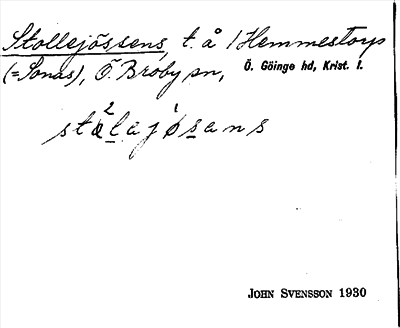 Stollejössens, t. å /Hemmestorp
(=Jonas), Ö. Broby sn, Ö. Göinge hd, Krist. l.
stålajösans
JOHN SVENSSON 1930